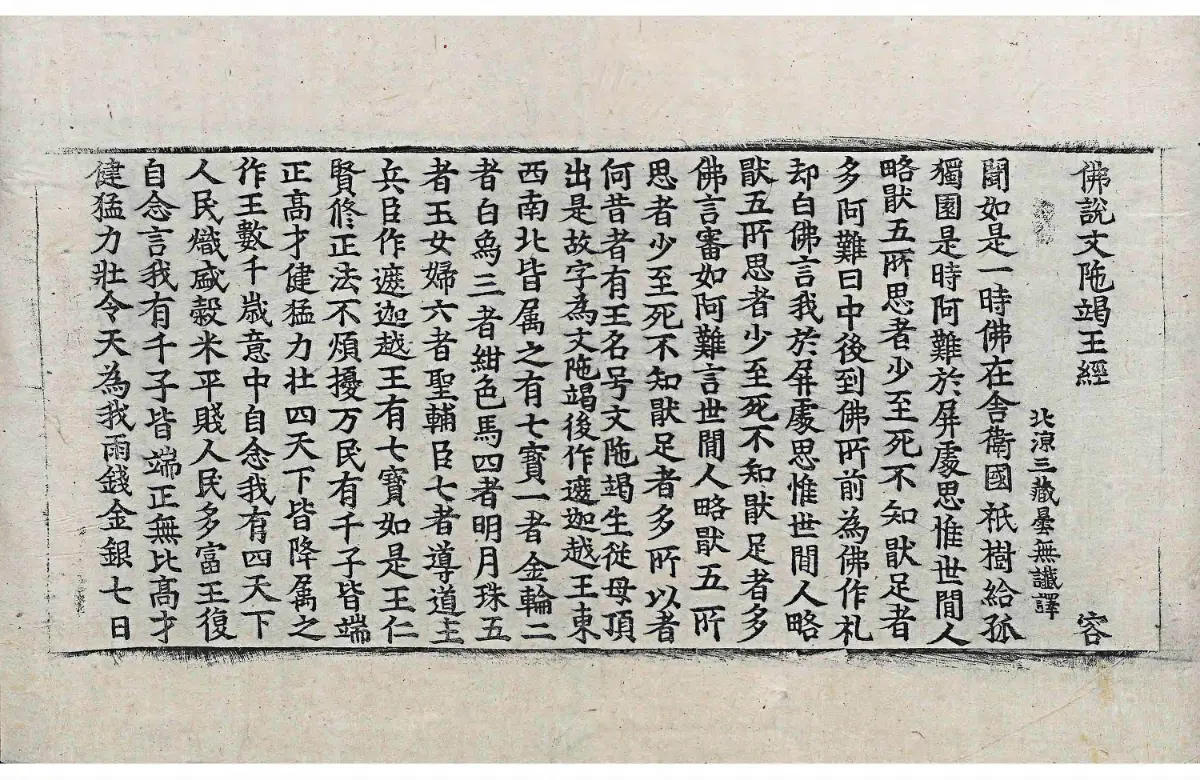 佛說文陁竭王經 容
北涼三藏曇無讖譯
聞如是一時佛在舎衛國祇樹給孤
獨園是時阿難於屏處思惟世間人
略猒五所思者少至死不知猒足者
多阿難日中後到佛所前為佛作礼
却白佛言我於屏處思惟世間人略
猒五所思者少至死不知猒足者多
佛言審如阿難言世間人略猒五所
思者少至死不知猒足者多所以者
何昔者有王名号文陁竭生從母頂
出是故字為文陁竭後作遮迦越王東
西南北皆属之有七寳一者金輪二
者白象三者紺色馬四者明月珠五
者玉女婦六者聖輔臣七者導道主
兵臣作遮迦越王有七寳如是王仁
賢修正法不煩擾万民有千子皆端
正髙才健猛力壯四天下皆降属之
作王數千歳意中自念我有四天下
人民熾盛榖米平賤人民多富王復
自念言我有千子皆端正無比髙才
健猛力壯令天為我雨錢金銀七日